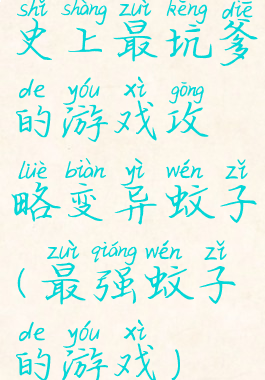 shǐ shàng zuì kēng diē
史上最坑爹
de yóu xì gōng
的游戏攻
lüè biàn yì wén zǐ
略变异蚊子
zuì qiáng wén zǐ
(最强蚊子
de yóu xì
的游戏)